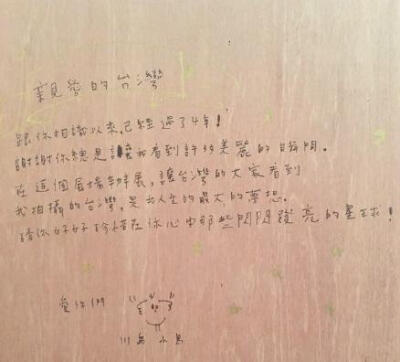 親愛的台灣
跟你相識以來,已經過了4年!
謝謝你總是讓我看到許多美麗的時間。
在這個展場辦展,讓台灣的大家看到
我拍攝的台灣,是我人生的最大的夢想。
請你好好珍惜在你心中那些閃閃發亮的星球!
愛你們
川島小鳥